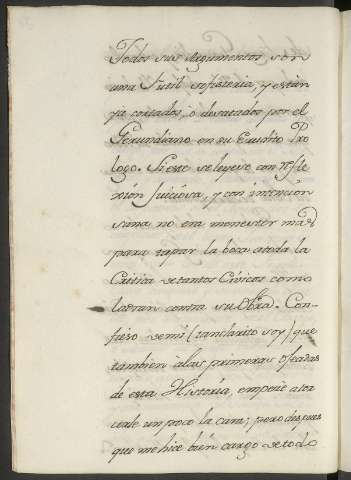 Todos sus Argumentos, son
una futil sofisteria, y están
ya cortados, ò desatados por el
Gerundiano en su Erudito Pro
logo. Si este se leyese con refle
xión juiciosa, y con intención
sana no era menester mas
para tapar la boca atoda la
Critica de tantos Cinicos como
ladran contra su Obra. Con-
fieso de mi (tan clarito soy) que
tambien à las primeras ojeadas
de esta Historia, empecé a tor
cerle un poco la cara; pero despues
que me hice bien cargo de todo